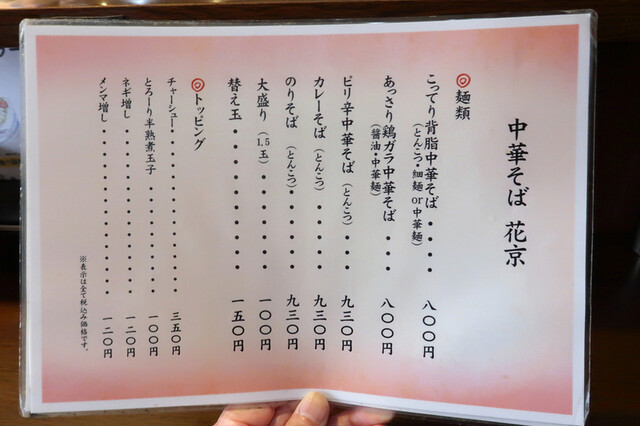 中華そば 花京
◎麺類
こってり背脂中華そば・・・・八〇〇円
(とんこつ・細麺or中華麺)
あっさり鶏ガラ中華そば・・・八〇〇円
(醤油・中華麺)
ピリ辛中華そば(とんこつ)・・・九三〇円
カレーそば(とんこつ)・・・・九三〇円
のりそば (とんこつ)・・・・・九三〇円
大盛り(1.5玉)・・・・・・・一〇〇円
替え玉・・・・・・・・・・一五〇円
◎トッピング
チャーシュー・・・・・・・・・・・・三五〇円
とろーり半熟煮玉子・・・・・・・・一〇〇円
ネギ増し・・・・・・・・・・・・・一二〇円
メンマ増し・・・・・・・・・・・・一二〇円
※表示は全て税込み価格です。